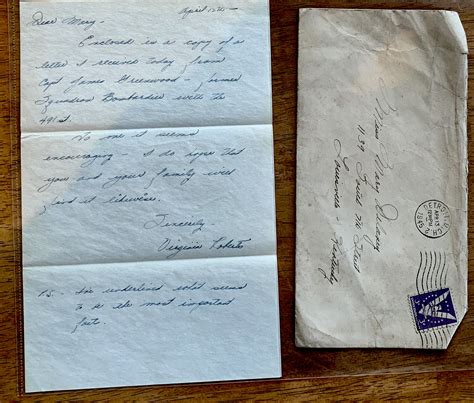 April 12th -
Dear Mary -
Enclosed is a copy of a
letter I received today from
Capt. James Greenwood - former
Squadron Bombardier with the
491st.
To me it seems
encouraging - I do hope that
you and your family will
find it likewise.
Sincerely
Virginia Roberts
P.S. - I've underlined what seems
to be the most important
part.
Miss Mary
1139 South Street
Louisville - Kentucky
DETROIT
APR 13
1945